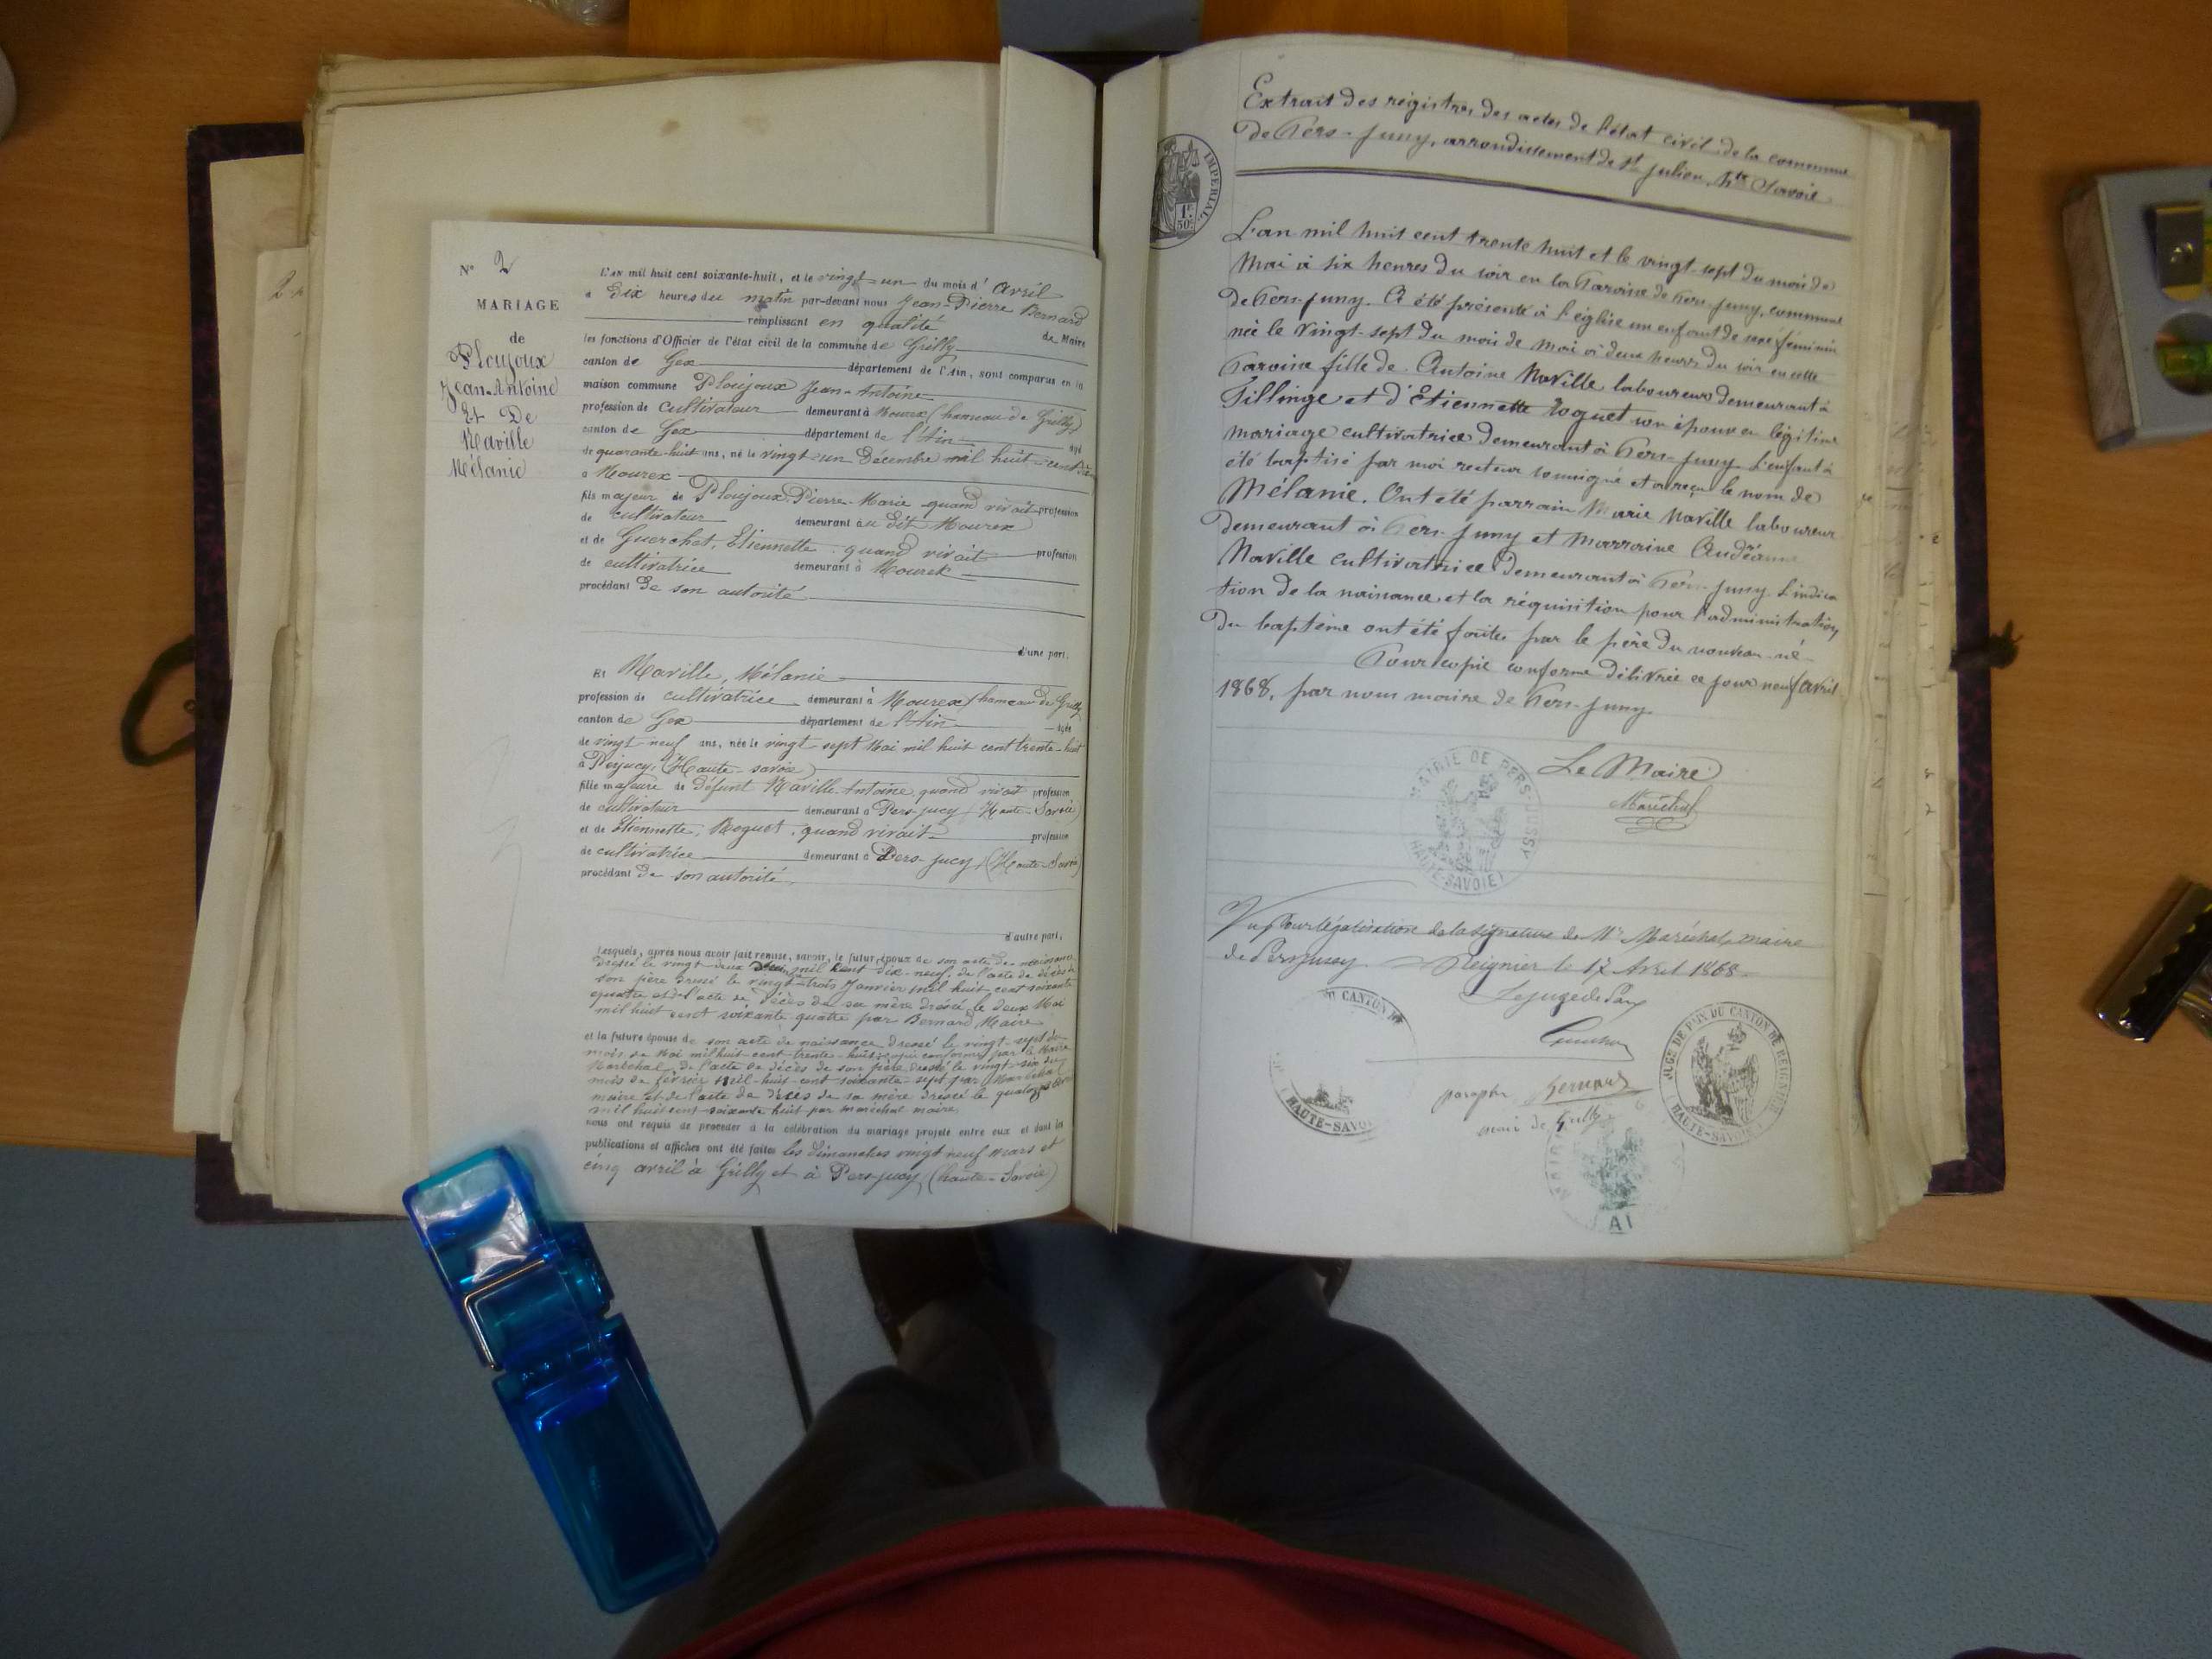 N° 2
MARIAGE
de
Ploujoux
Jean-Antoine
Et De
Naville
Mélanie
L'AN mil huit cent soixante-huit, et le vingt-un du mois d'avril
à dix heures du matin par-devant nous Jean-Pierre Bernard
remplissant en qualité de Maire
les fonctions d'Officier de l'état civil de la commune de Grilly
canton de Gex département de l'Ain, sont comparus en la
maison commune Ploujoux Jean-Antoine
profession de cultivateur demeurant à Mourex (hameau de Grilly)
canton de Gex département de l'Ain âgé
de quarante-huit ans, né le vingt-un Décembre mil huit-cent-dix
à Mourex
fils majeur de Ploujoux Pierre-Marie quand vivait profession
de cultivateur demeurant au dit Mourex
et de Guerchet, Etiennette quand vivait profession
de cultivatrice demeurant à Mourex
procédant de son autorité
d'une part.
Et Naville, Mélanie
profession de cultivatrice demeurant à Mourex (hameau de Grilly
canton de Gex département de l'Ain âgée
de vingt neuf ans, née le vingt sept Mai mil huit cent trente-huit
à Persjucy, (Haute-savoie)
fille majeure de défunt Naville Antoine, quand vivait profession
de cultivateur demeurant à Pers-jucy (Haute-Savoie)
et de Etiennette, Roguet, quand vivait profession
de cultivatrice demeurant à Pers-jucy, (Haute-Savoie)
procédant de son autorité,
d'autre part.
Lesquels, après nous avoir fait remise, savoir, le futur époux de son acte de naissance
dressé le vingt-deux mil huit dix-neuf, de l'acte de décès de
son père dressé le vingt-trois Janvier mil huit-cent soixante
quatre et de l'acte de décès de sa mère dressé le deux Mai
mil huit cent soixante-quatre par Bernard Maire
et la future épouse de son acte de naissance dressé le vingt-sept du
mois de Mai mil huit-cent-trente-huit copie conforme par le Maire
Maréchal, de l'acte de décès de son père dressé le vingt-six du
mois de février mil-huit-cent soixante-sept par Maréchal
maire et de l'acte de décès de sa mère dressé le quatorze
mil huit cent soixante huit par maréchal maire,
nous ont requis de procéder à la célébration du mariage projeté entre eux et dont les
publications et affiches ont été faites les dimanches vingt neuf mars et
cinq avril à Grilly et à Pers-jucy, (haute-Savoie)
IMPERIAL
1F
50c
Extrait des régistres des actes de l'état civil de la commune
de Pers-Jussy, arrondissement de St Julien, Hte Savoie
L'an mil huit cent trente huit et le vingt-sept du mois de
Mai à six heures du soir en la Paroisse de Pers-Jussy, commune
de Pers-Jussy. A été présenté à l'église un enfant de sexe féminin
née le vingt-sept du mois de mai à deux heures du soir en cette
Paroisse fille de Antoine Naville laboureur demeurant à
Fillinge et d'Etiennette Roguet son épouse en légitime
mariage cultivatrice demeurant à Pers-Jussy. L'enfant à
été baptisé par moi recteur soussigné et a reçu le nom de
Mélanie. Ont été parrain Marie Naville laboureur
demeurant à Pers-Jussy et marraine Andréanne
Naville cultivatrice demeurant à Pers-Jussy. L'indica
tion de la naissance et la réquisition pour l'administration
du baptême ont été faites par le père du nouveau-né
Pour copie conforme délivrée ce jour neuf avril
1868, par nous maire de Pers-Jussy
Le Maire
Maréchal
MAIRIE DE PERS-JUSSY
HAUTE-SAVOIE
Vu Pour légalisation de la signature de Mr Maréchal, maire
de Persjussy. Reignier le 17 Avril 1868
Le juge de Paix
DU CANTON DE
HAUTE-SAVOIE
JUGE DE PAIX DU CANTON DE REIGNIER
HAUTE-SAVOIE
paraphe Bernard
maire de Grilly
MAIRIE
AI